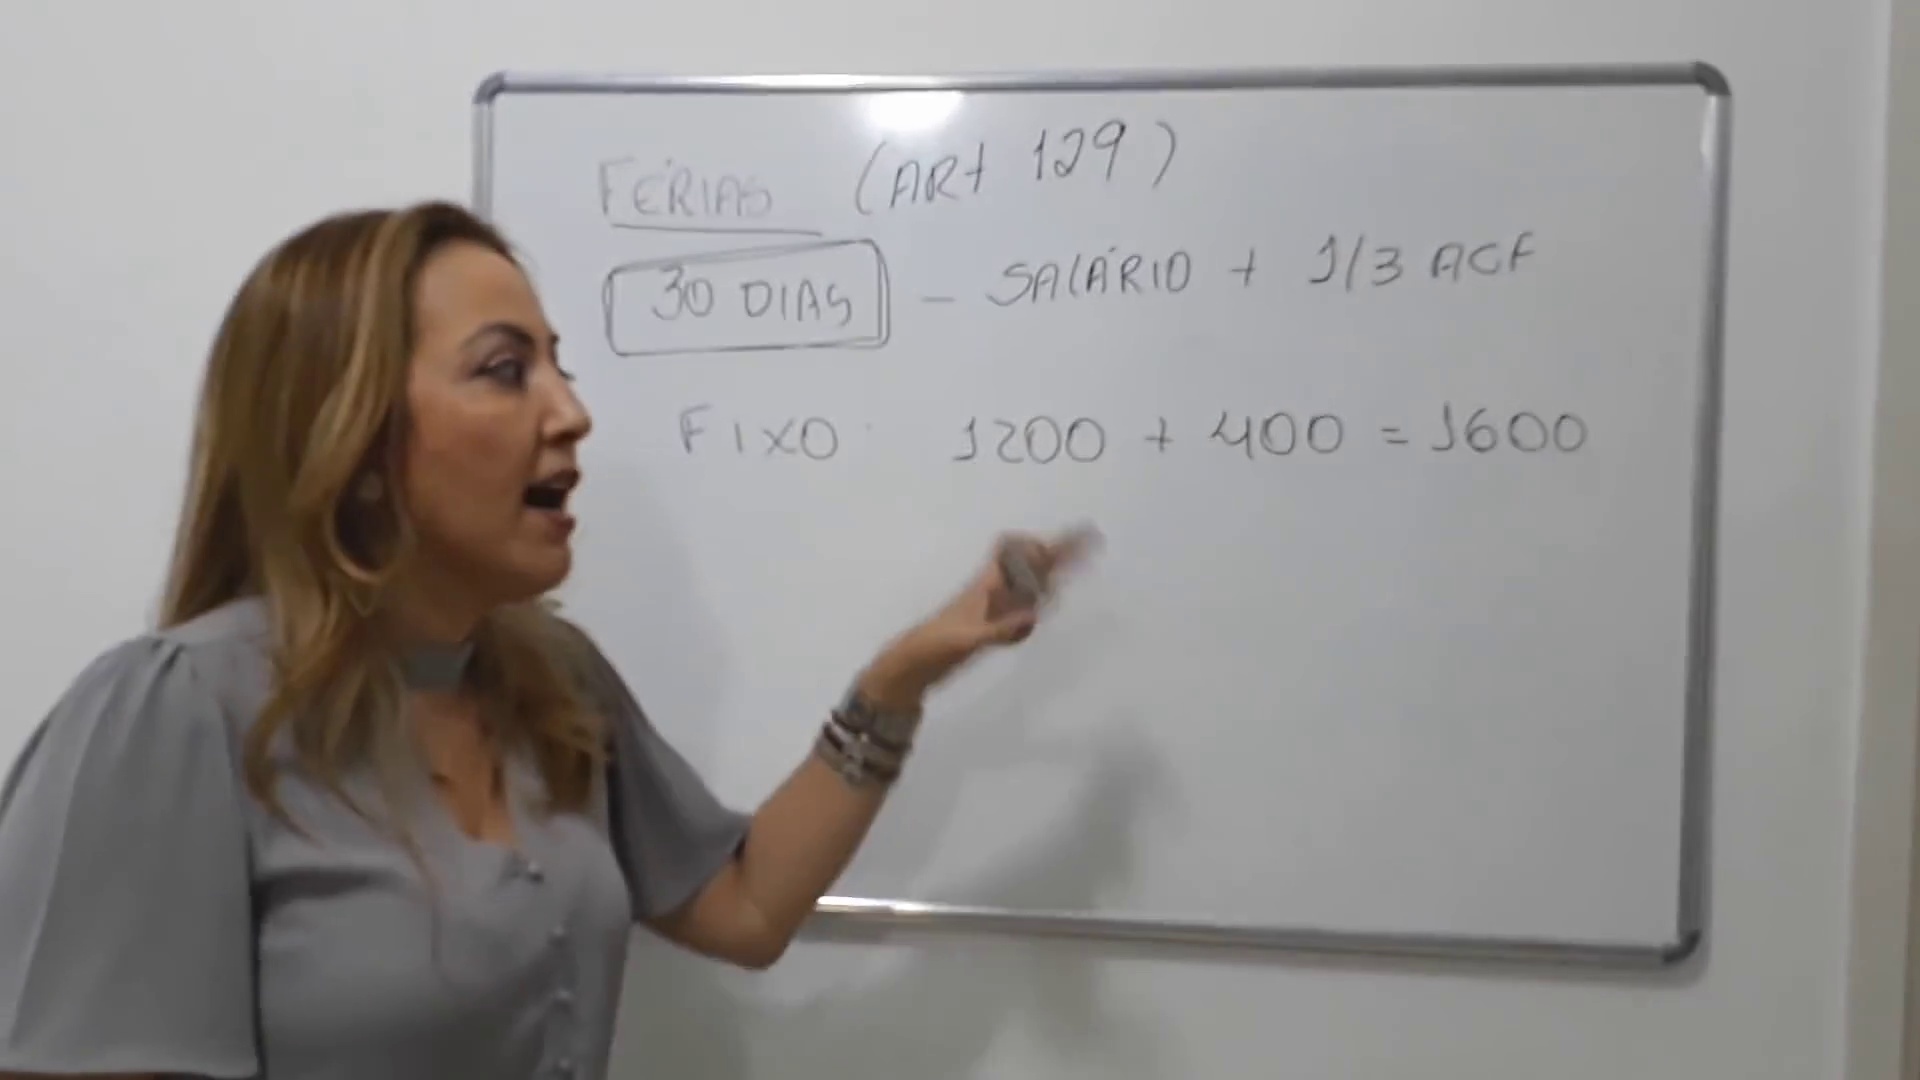 FÉRIAS (ART 129)
30 DIAS - SALÁRIO + 1/3 ACF
FIXO 1200 + 400 = 1600